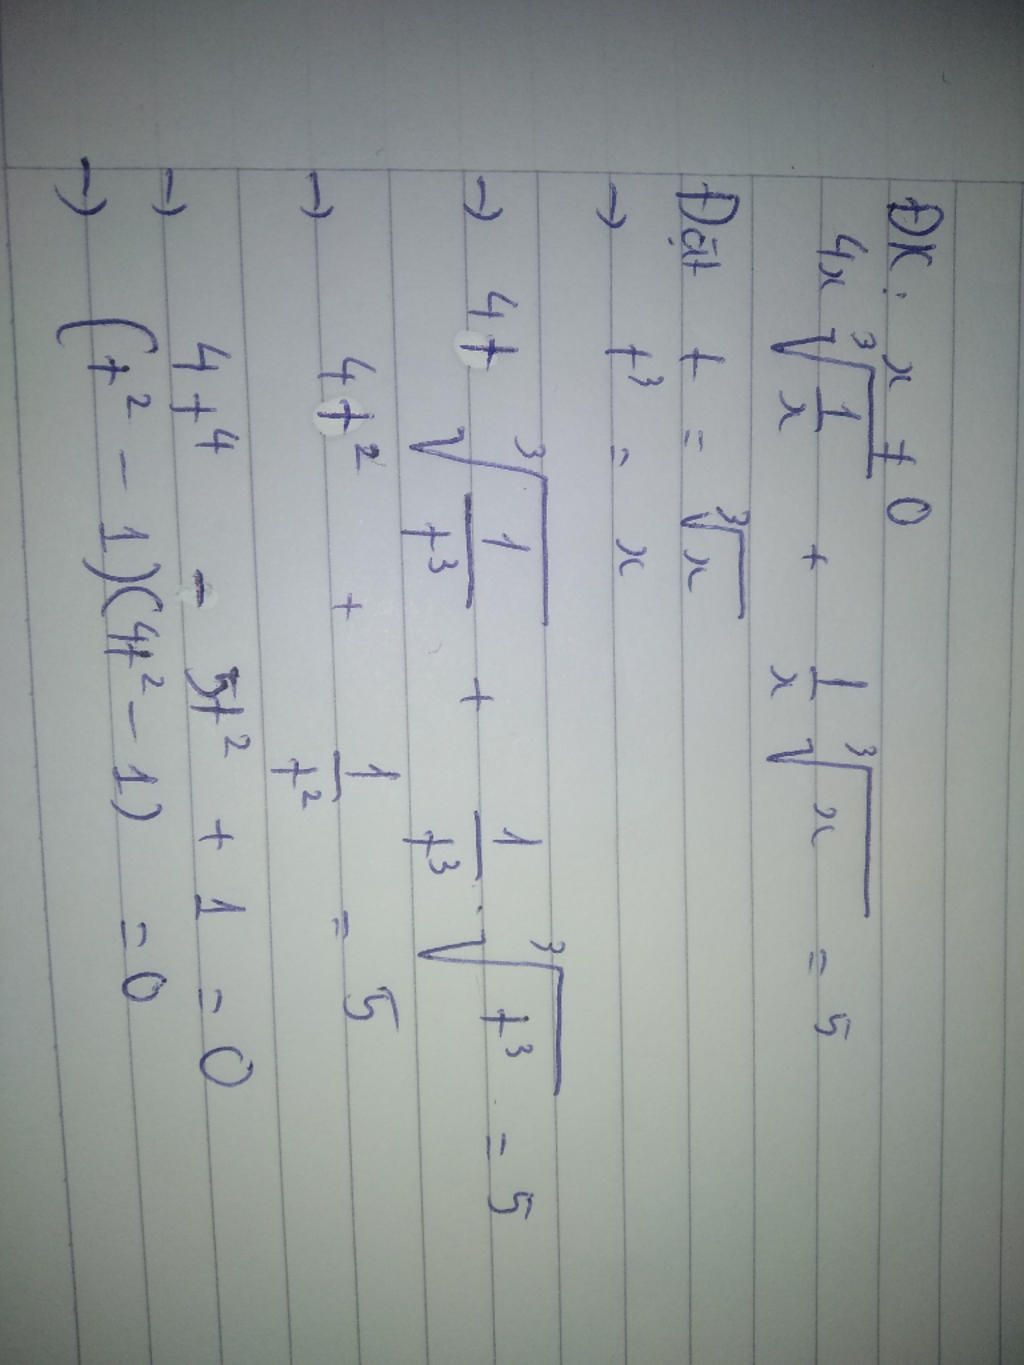 ĐK: x ≠ 0
4x ∛(1/x) + 1/x ∛x = 5
Đặt t = ∛x
→ t³ = x
→ 4t ∛(1/t³) + 1/t³ . ∛t³ = 5
→ 4t² + 1/t² = 5
→ 4t⁴ - 5t² + 1 = 0
→ (t² - 1)(4t² - 1) = 0